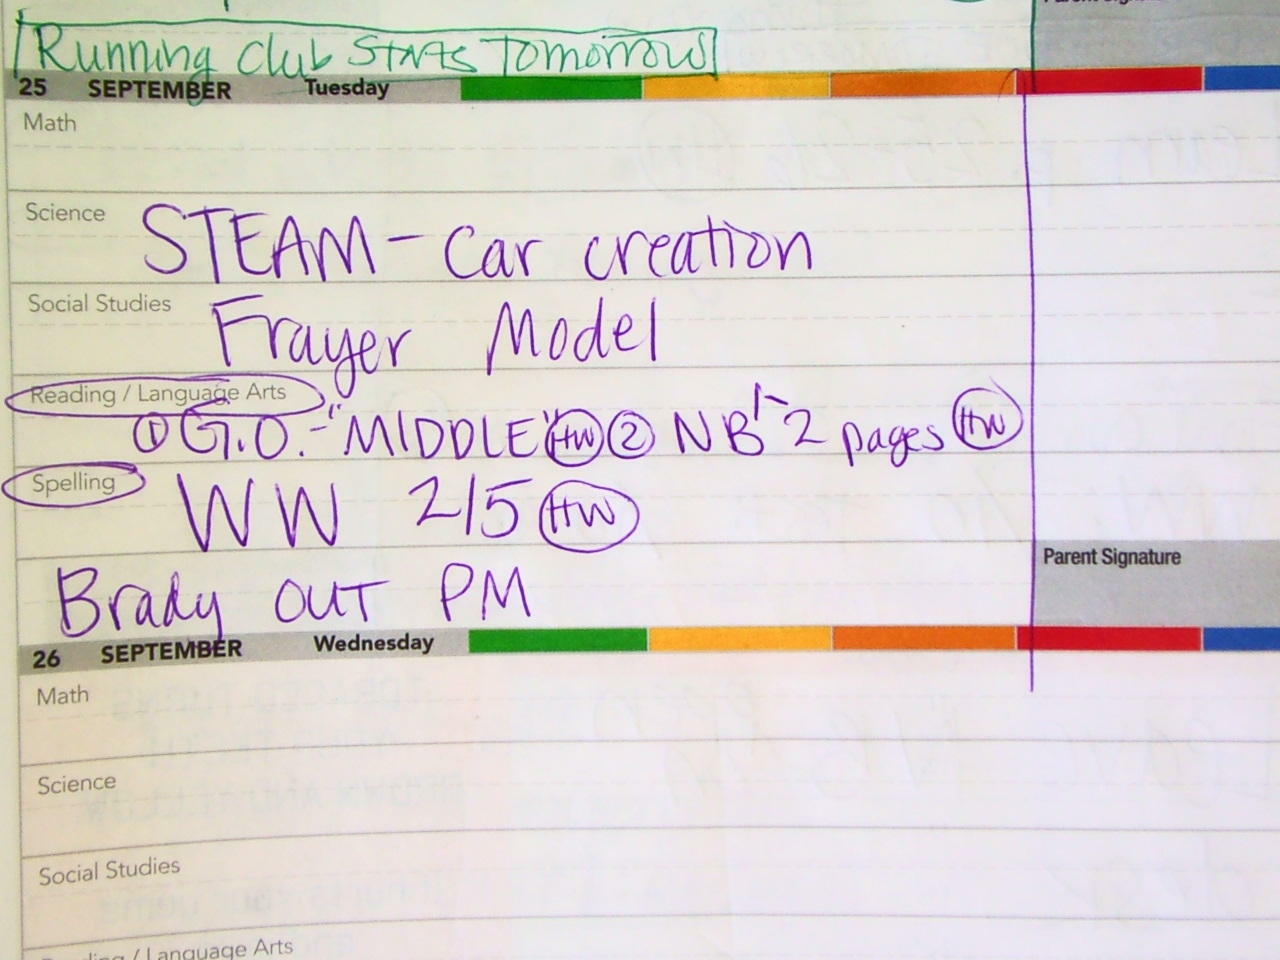 Running Club Starts Tomorrow
25 SEPTEMBER Tuesday
Math
Science STEAM - Car creation
Social Studies Frayer Model
Reading / Language Arts
① G.O. - "MIDDLE" HW ② NB 1-2 pages HW
Spelling WW 2/5 HW
Brady OUT PM
Parent Signature
26 SEPTEMBER Wednesday
Math
Science
Social Studies
Reading / Language Arts